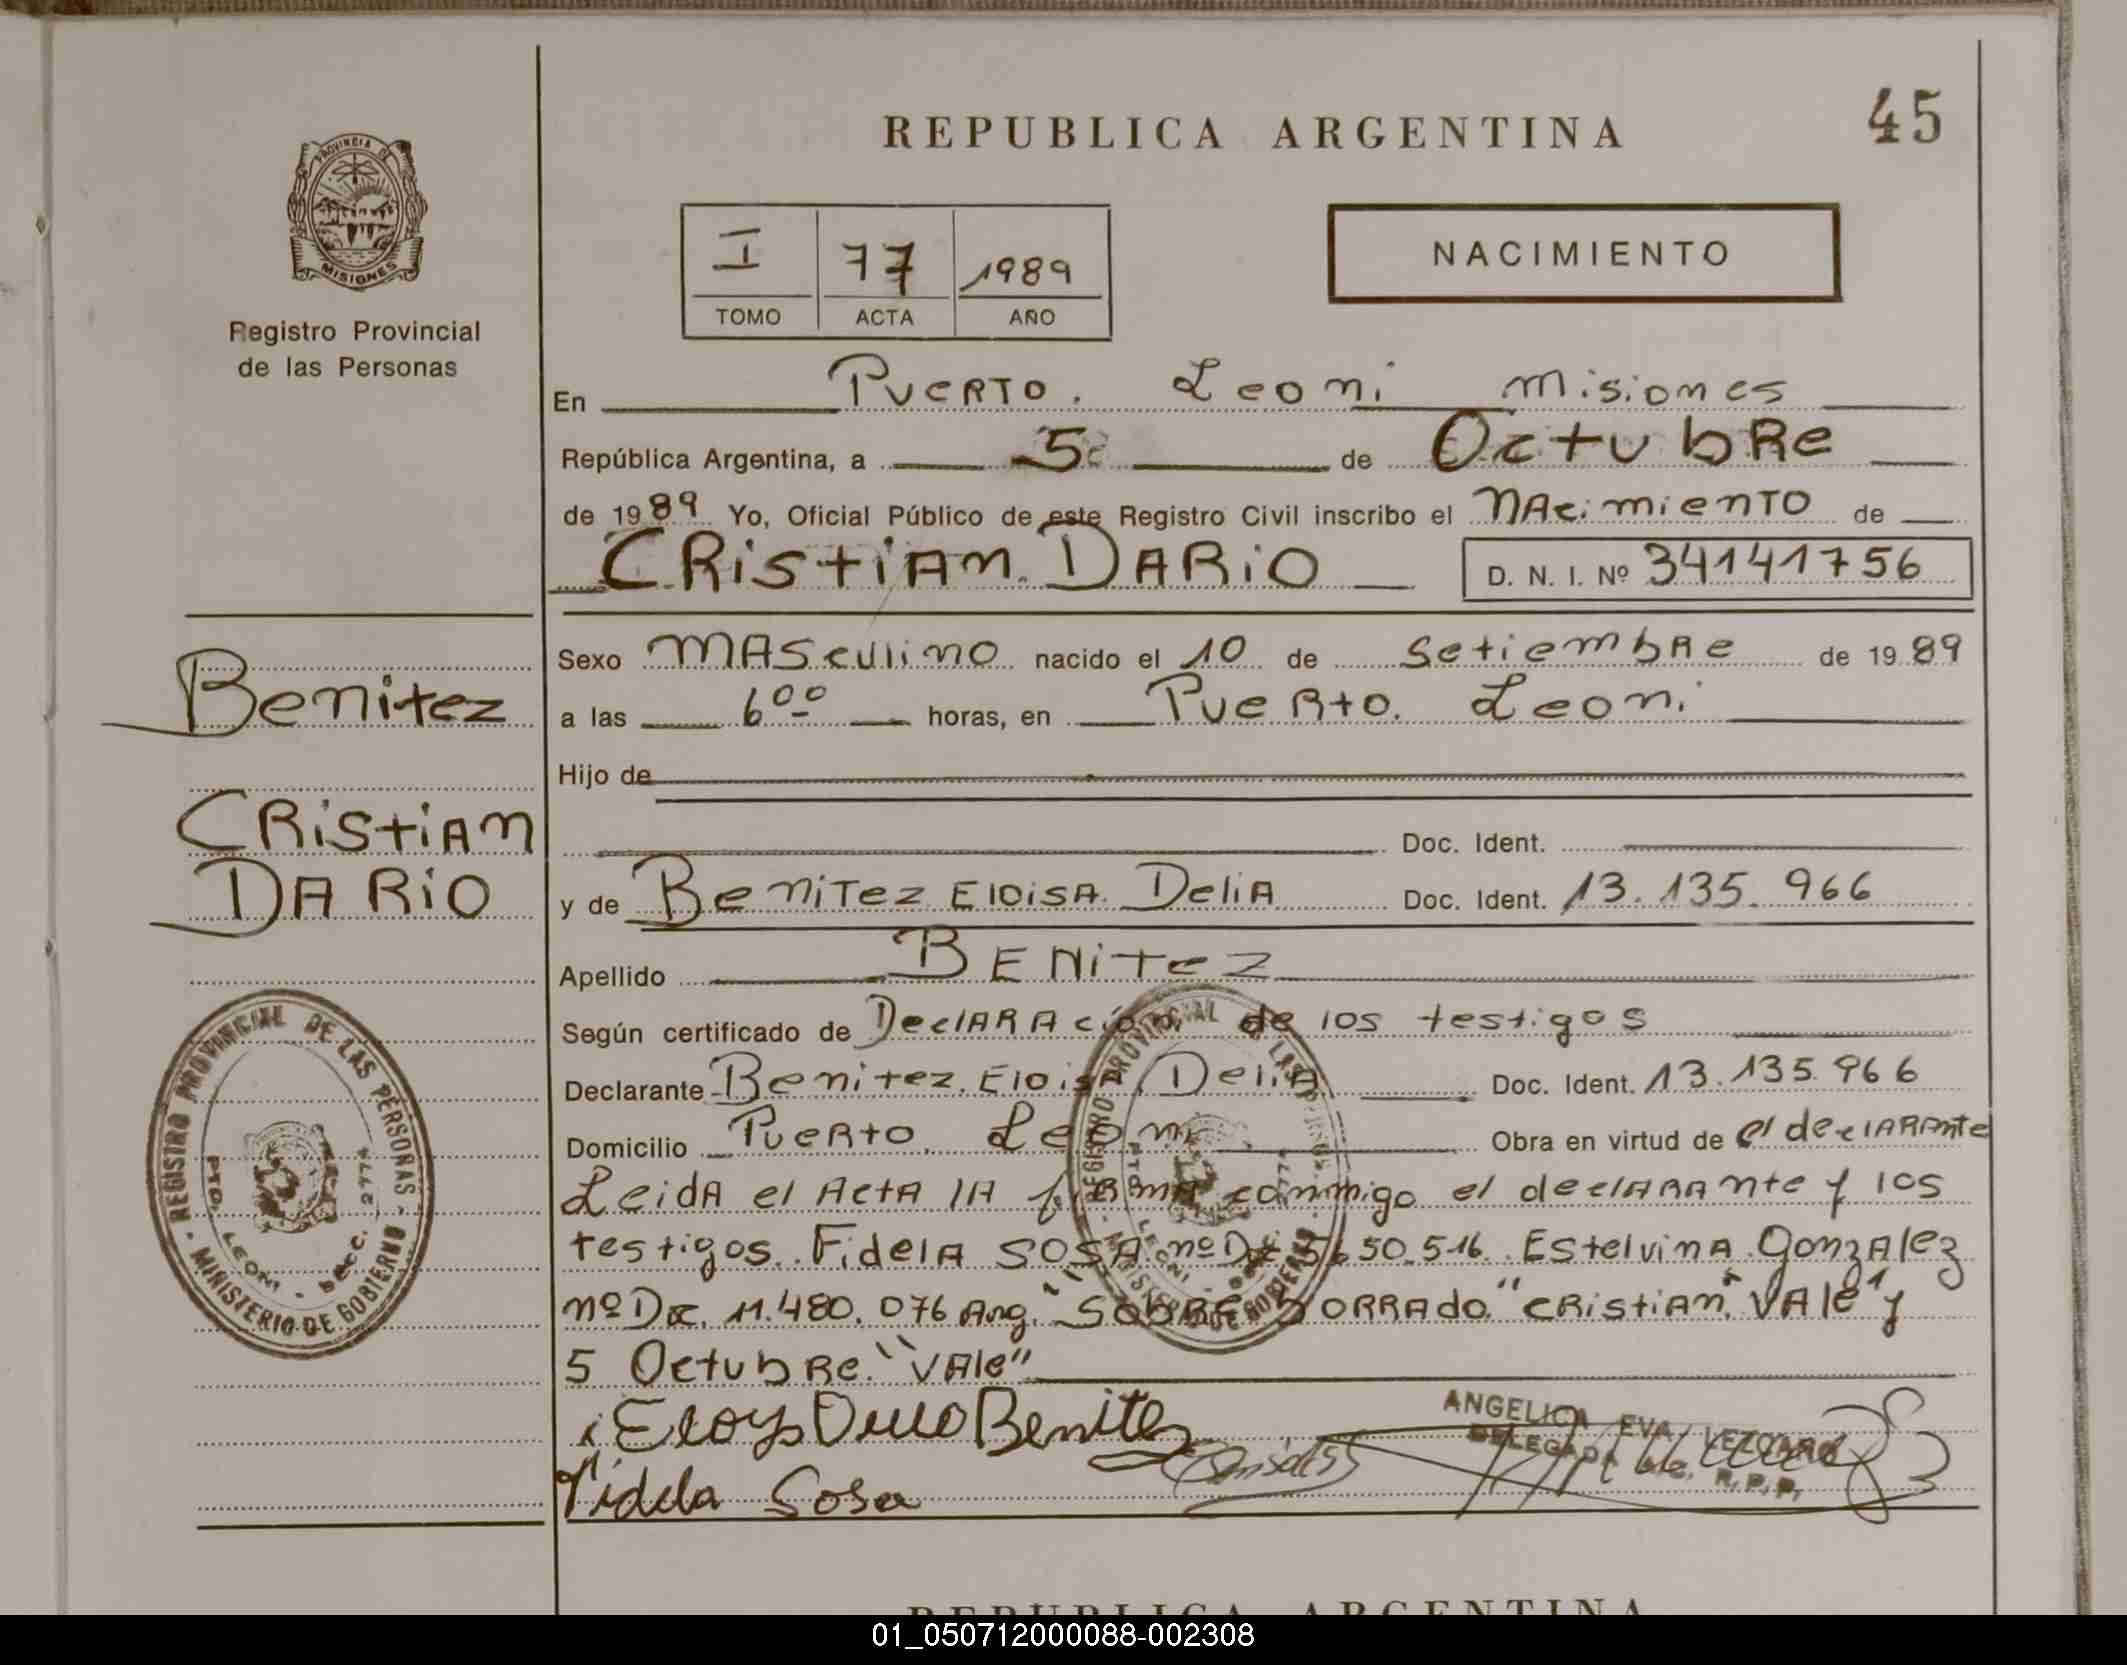 REPUBLICA ARGENTINA
45
PROVINCIA DE
MISIONES
Registro Provincial
de las Personas
I 77 1989
TOMO ACTA AÑO
NACIMIENTO
En Puerto. Leoni misiones
República Argentina, a 5 de Octubre
de 1989 Yo, Oficial Público de este Registro Civil inscribo el nacimiento de
CRistian DARiO D. N. I. Nº 34141756
Sexo MASculino nacido el 10 de Setiembre de 1989
a las 6⁰⁰ horas, en Puerto. Leoni
Hijo de
Doc. Ident.
y de Benitez Eloisa Delia Doc. Ident. 13.135.966
Apellido BENitez
Según certificado de Declaración de los testigos
Declarante Benitez. Eloisa Delia Doc. Ident. 13.135.966
Domicilio Puerto Leoni Obra en virtud de el declarante
Leida el Acta la firma conmigo el declarante y los
testigos. Fidela SOSA nº Dc 5650.516. Estelvina Gonzalez
nº Dc. 11.480.076 Arg. "SOBRE BORRADO" "CRistian" VAle" y
5 Octubre. "VAle"
Benitez
CRistian
DARiO
REGISTRO PROVINCIAL DE LAS PERSONAS
MINISTERIO DE GOBIERNO
PTO. LEONI - SECC. 2774
REGISTRO PROVINCIAL DE LAS PERSONAS
MINISTERIO DE GOBIERNO
PTO. LEONI
Benitez
ANGELICA EVA LEZCANO
DELEGADA
R.P.P.
Fidela Sosa
REPUBLICA ARGENTINA
01_050712000088-002308